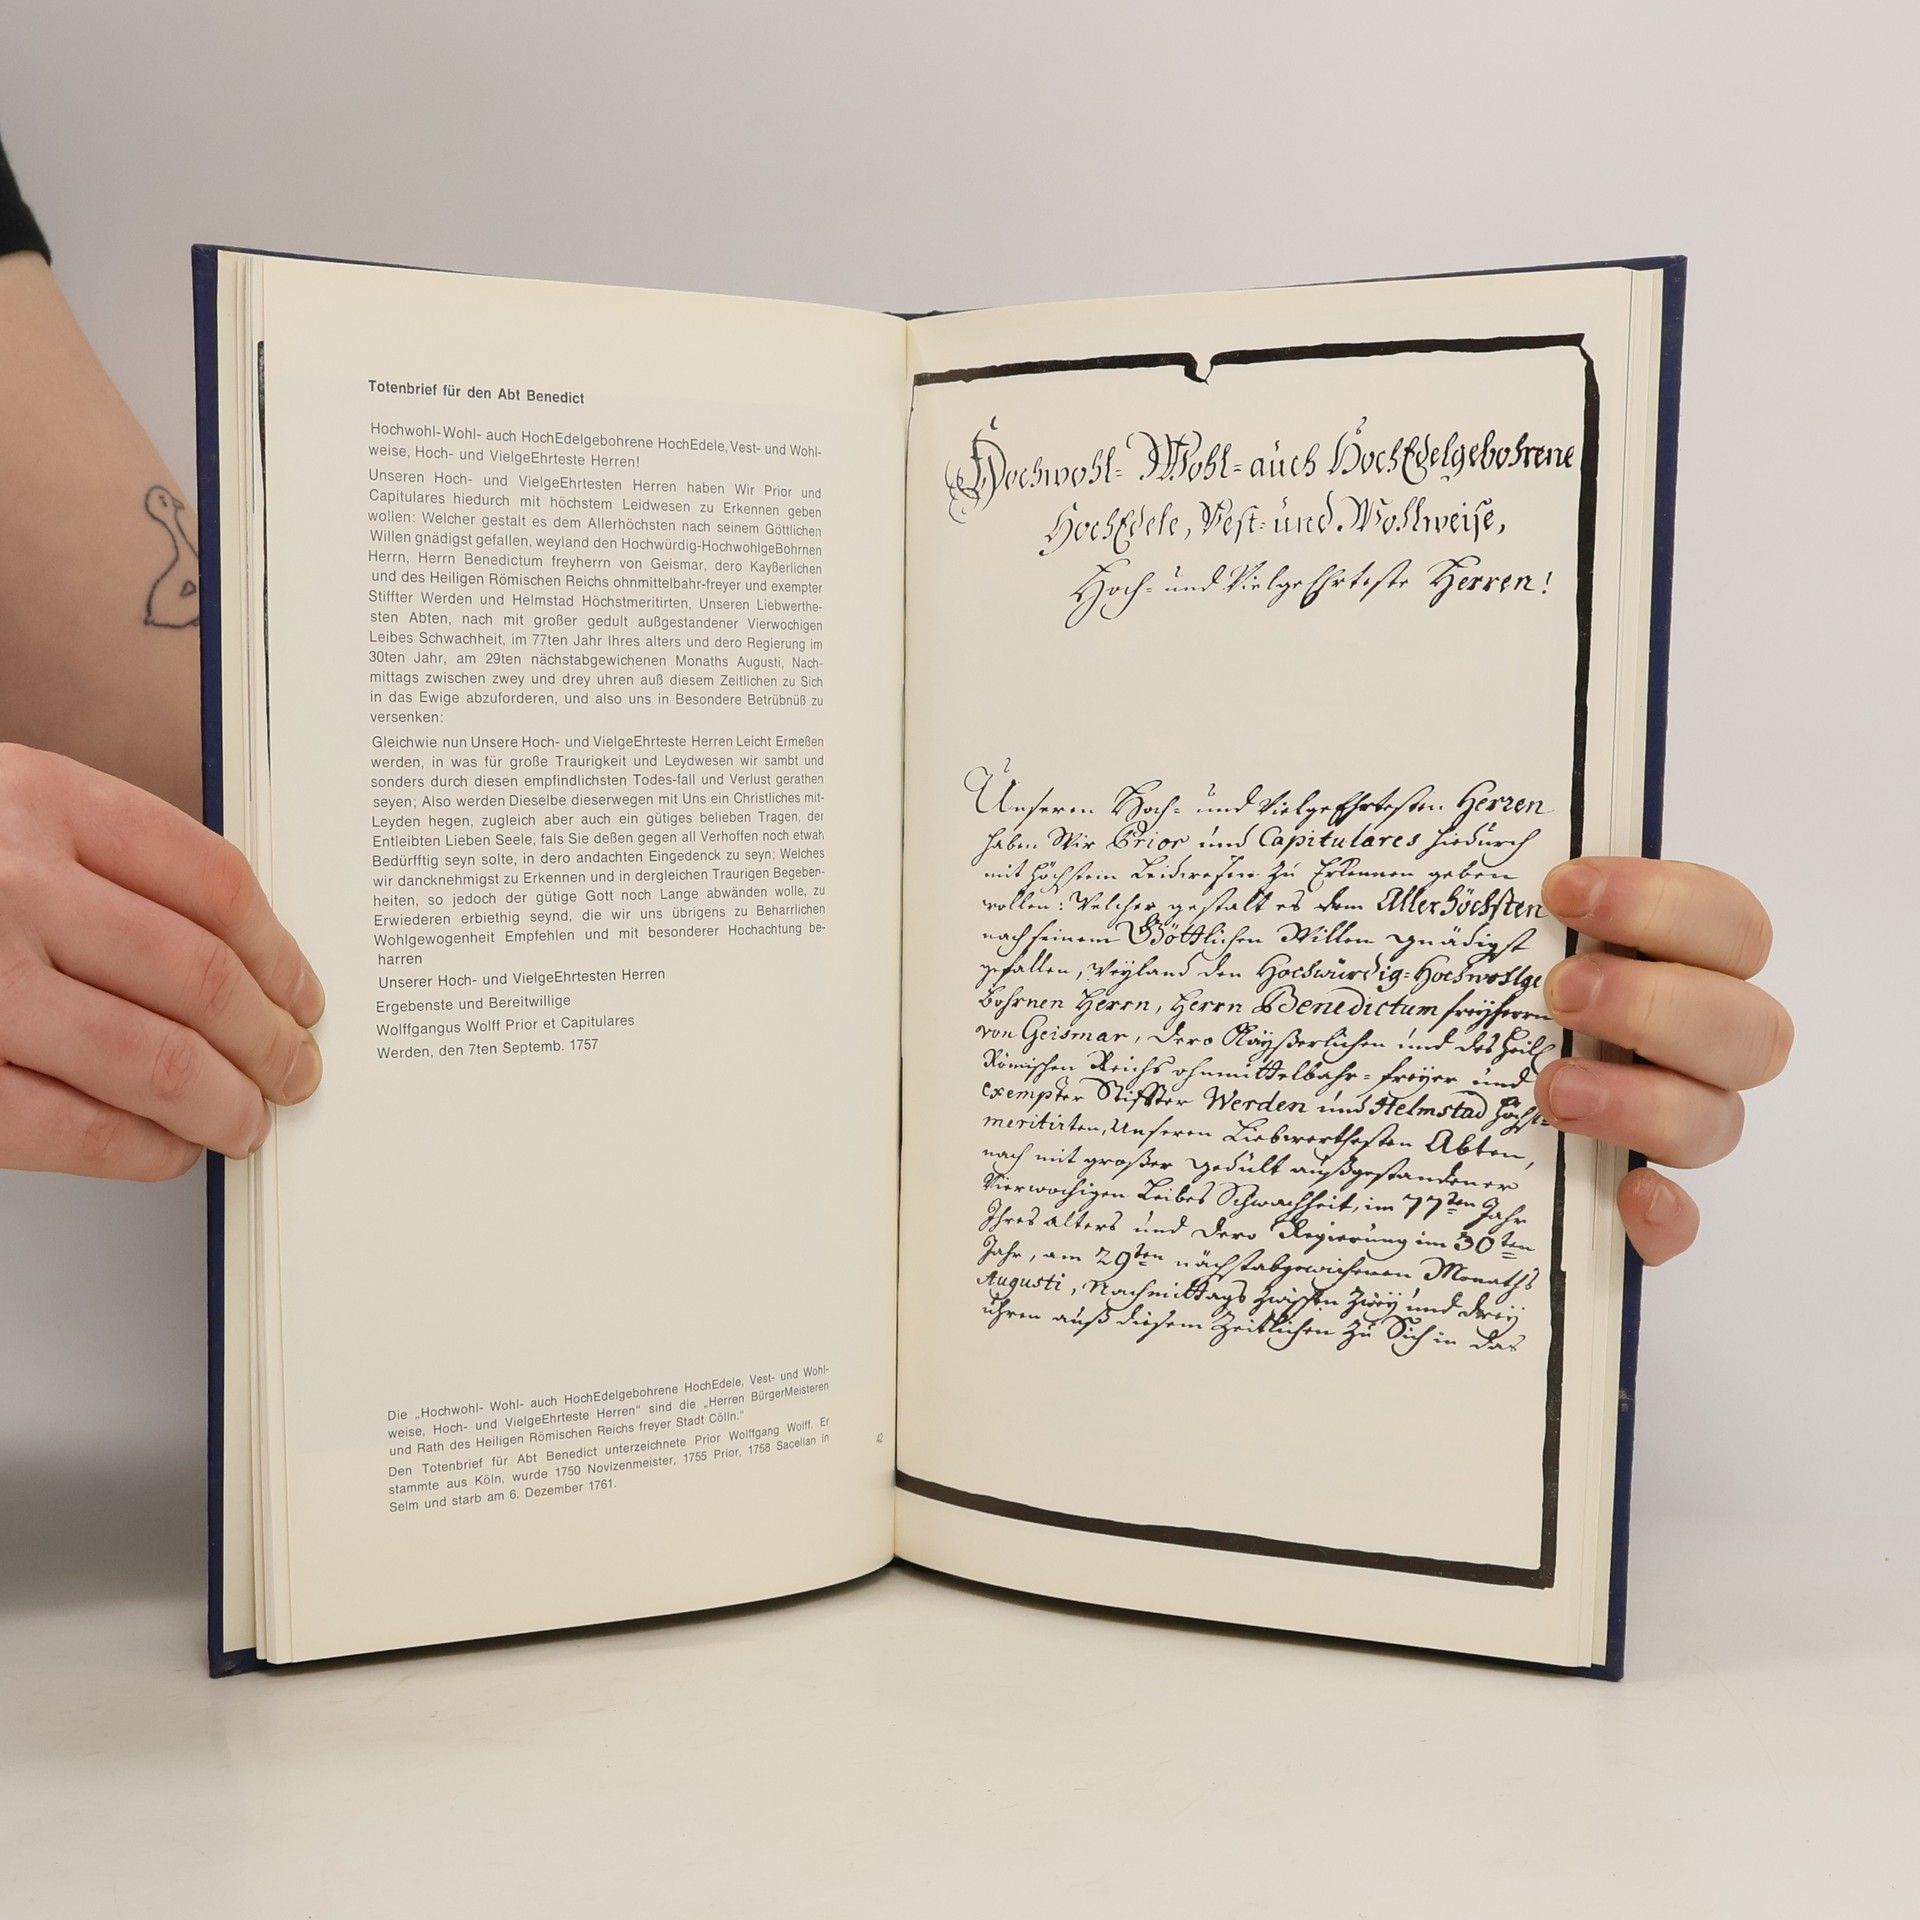 Totenbrief für den Abt Benedict
Hochwohl-Wohl- auch HochEdelgebohrene HochEdele, Vest- und Wohl-
weise, Hoch- und VielgeEhrteste Herren!
Unseren Hoch- und VielgeEhrtesten Herren haben Wir Prior und
Capitulares hiedurch mit höchstem Leidwesen zu Erkennen geben
wollen: Welcher gestalt es dem Allerhöchsten nach seinem Göttlichen
Willen gnädigst gefallen, weyland den Hochwürdig-HochwohlgeBohrnen
Herrn, Herrn Benedictum freyherrn von Geismar, dero Kayßerlichen
und des Heiligen Römischen Reichs ohnmittelbahr-freyer und exempter
Stiffter Werden und Helmstad Höchstmeritirten, Unseren Liebwerthe-
sten Abten, nach mit großer gedult außgestandener Vierwochigen
Leibes Schwachheit, im 77ten Jahr Ihres alters und dero Regierung im
30ten Jahr, am 29ten nächstabgewichenen Monaths Augusti, Nach-
mittags zwischen zwey und drey uhren auß diesem Zeitlichen zu Sich
in das Ewige abzuforderen, und also uns in Besondere Betrübnüß zu
versenken:
Gleichwie nun Unsere Hoch- und VielgeEhrteste Herren Leicht Ermeßen
werden, in was für große Traurigkeit und Leydwesen wir sambt und
sonders durch diesen empfindlichsten Todes-fall und Verlust gerathen
seyen; Also werden Dieselbe dieserwegen mit Uns ein Christliches mit-
Leyden hegen, zugleich aber auch ein gütiges belieben Tragen, der
Entleibten Lieben Seele, fals Sie deßen gegen all Verhoffen noch etwah
Bedürfftig seyn solte, in dero andachten Eingedenck zu seyn; Welches
wir dancknehmigst zu Erkennen und in dergleichen Traurigen Begeben-
heiten, so jedoch der gütige Gott noch Lange abwänden wolle, zu
Erwiederen erbiethig seynd, die wir uns übrigens zu Beharrlichen
Wohlgewogenheit Empfehlen und mit besonderer Hochachtung be-
harren
Unserer Hoch- und VielgeEhrtesten Herren
Ergebenste und Bereitwillige
Wolffgangus Wolff Prior et Capitulares
Werden, den 7ten Septemb. 1757
Die „Hochwohl- Wohl- auch HochEdelgebohrene HochEdele, Vest- und Wohl-
weise, Hoch- und VielgeEhrteste Herren“ sind die „Herren BürgerMeisteren
und Rath des Heiligen Römischen Reichs freyer Stadt Cölln.“
Den Totenbrief für Abt Benedict unterzeichnete Prior Wolffgang Wolff. Er
stammte aus Köln, wurde 1750 Novizenmeister, 1755 Prior, 1758 Sacellan in
Selm und starb am 6. Dezember 1761.
42
Hochwohl- Wohl- auch HochEdelgebohrene
HochEdele, Vest- und Wohlweise,
Hoch- und VielgeEhrteste Herren!
Unseren Hoch- und VielgeEhrtesten Herren
haben Wir Prior und Capitulares hiedurch
mit höchstem Leidwesen zu Erkennen geben
wollen: Welcher gestalt es dem Allerhöchsten
nach seinem Göttlichen Willen gnädigst
gefallen, weyland den Hochwürdig-Hochwohlge
Bohrnen Herrn, Herrn Benedictum freyherrn
von Geismar, dero Kayßerlichen und des Heil
Römischen Reichs ohnmittelbahr-freyer und
exempter Stiffter Werden und Helmstad Höchst-
meritirten, Unseren Liebwerthesten Abten,
nach mit großer gedult außgestandener
Vierwochigen Leibes Schwachheit, im 77ten Jahr
Ihres alters und dero Regierung im 30ten
Jahr, am 29ten nächstabgewichenen Monaths
Augusti, Nachmittags zwischen zwey und drey
uhren auß diesem Zeitlichen zu Sich in das